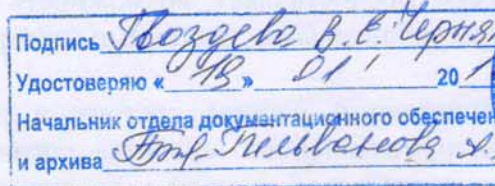 Подпись Гвоздева В. Е. Черня
Удостоверяю « 19 » 01 20 1
Начальник отдела документационного обеспечен
и архива